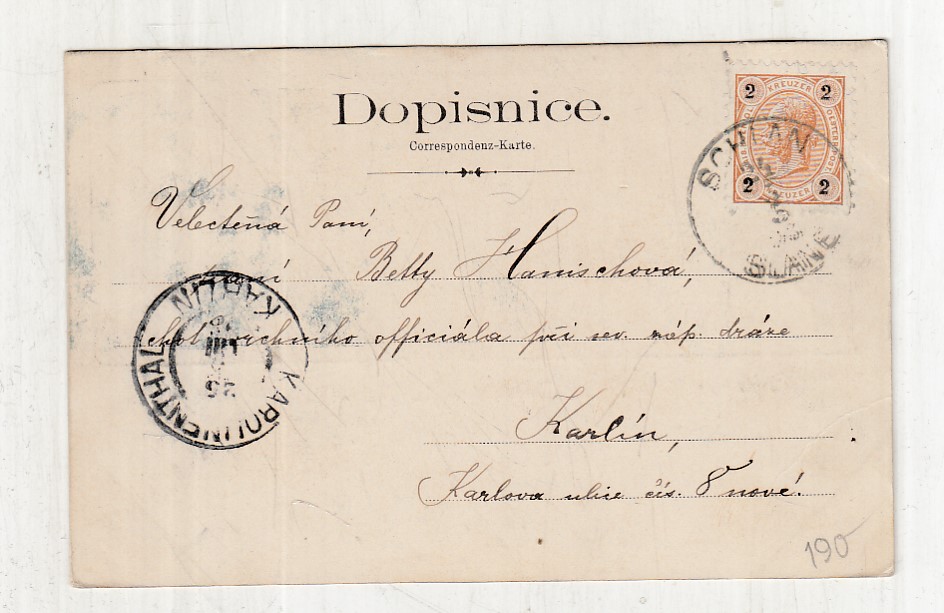 Dopisnice.
Correspondenz-Karte.
2 KREUZER 2
2 KREUZER 2
SCHLAN
SLANÉ
Velectěná Paní,
paní Betty Hanischová,
choť vrchního officiála při sev. záp. dráze
Karlín,
Karlova ulice čís. 8 nové!
KARLÍN
KAROLINENTHAL
190